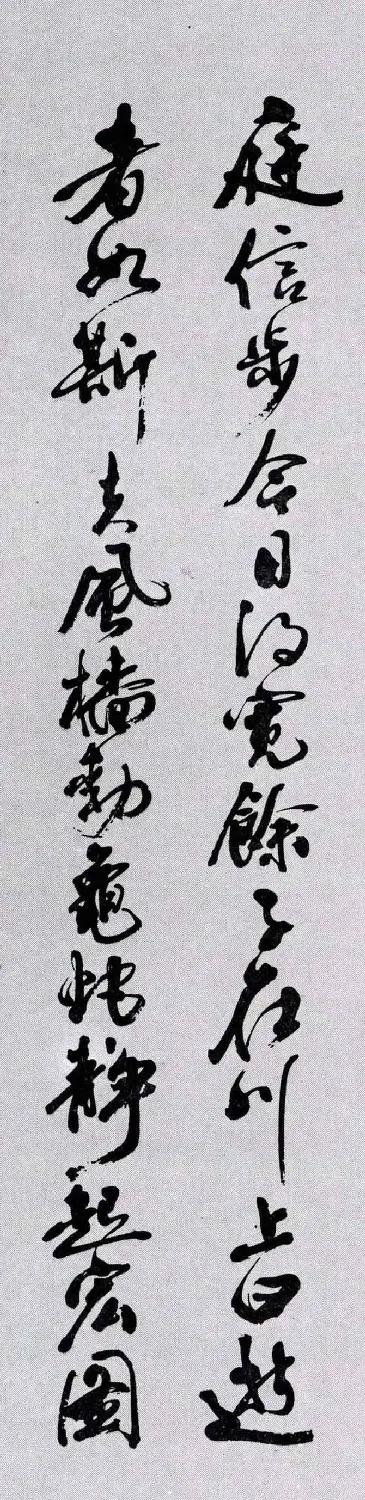 庭信步今日得寬餘子在川上曰逝
者如斯夫風檣動龜蛇靜起宏圖